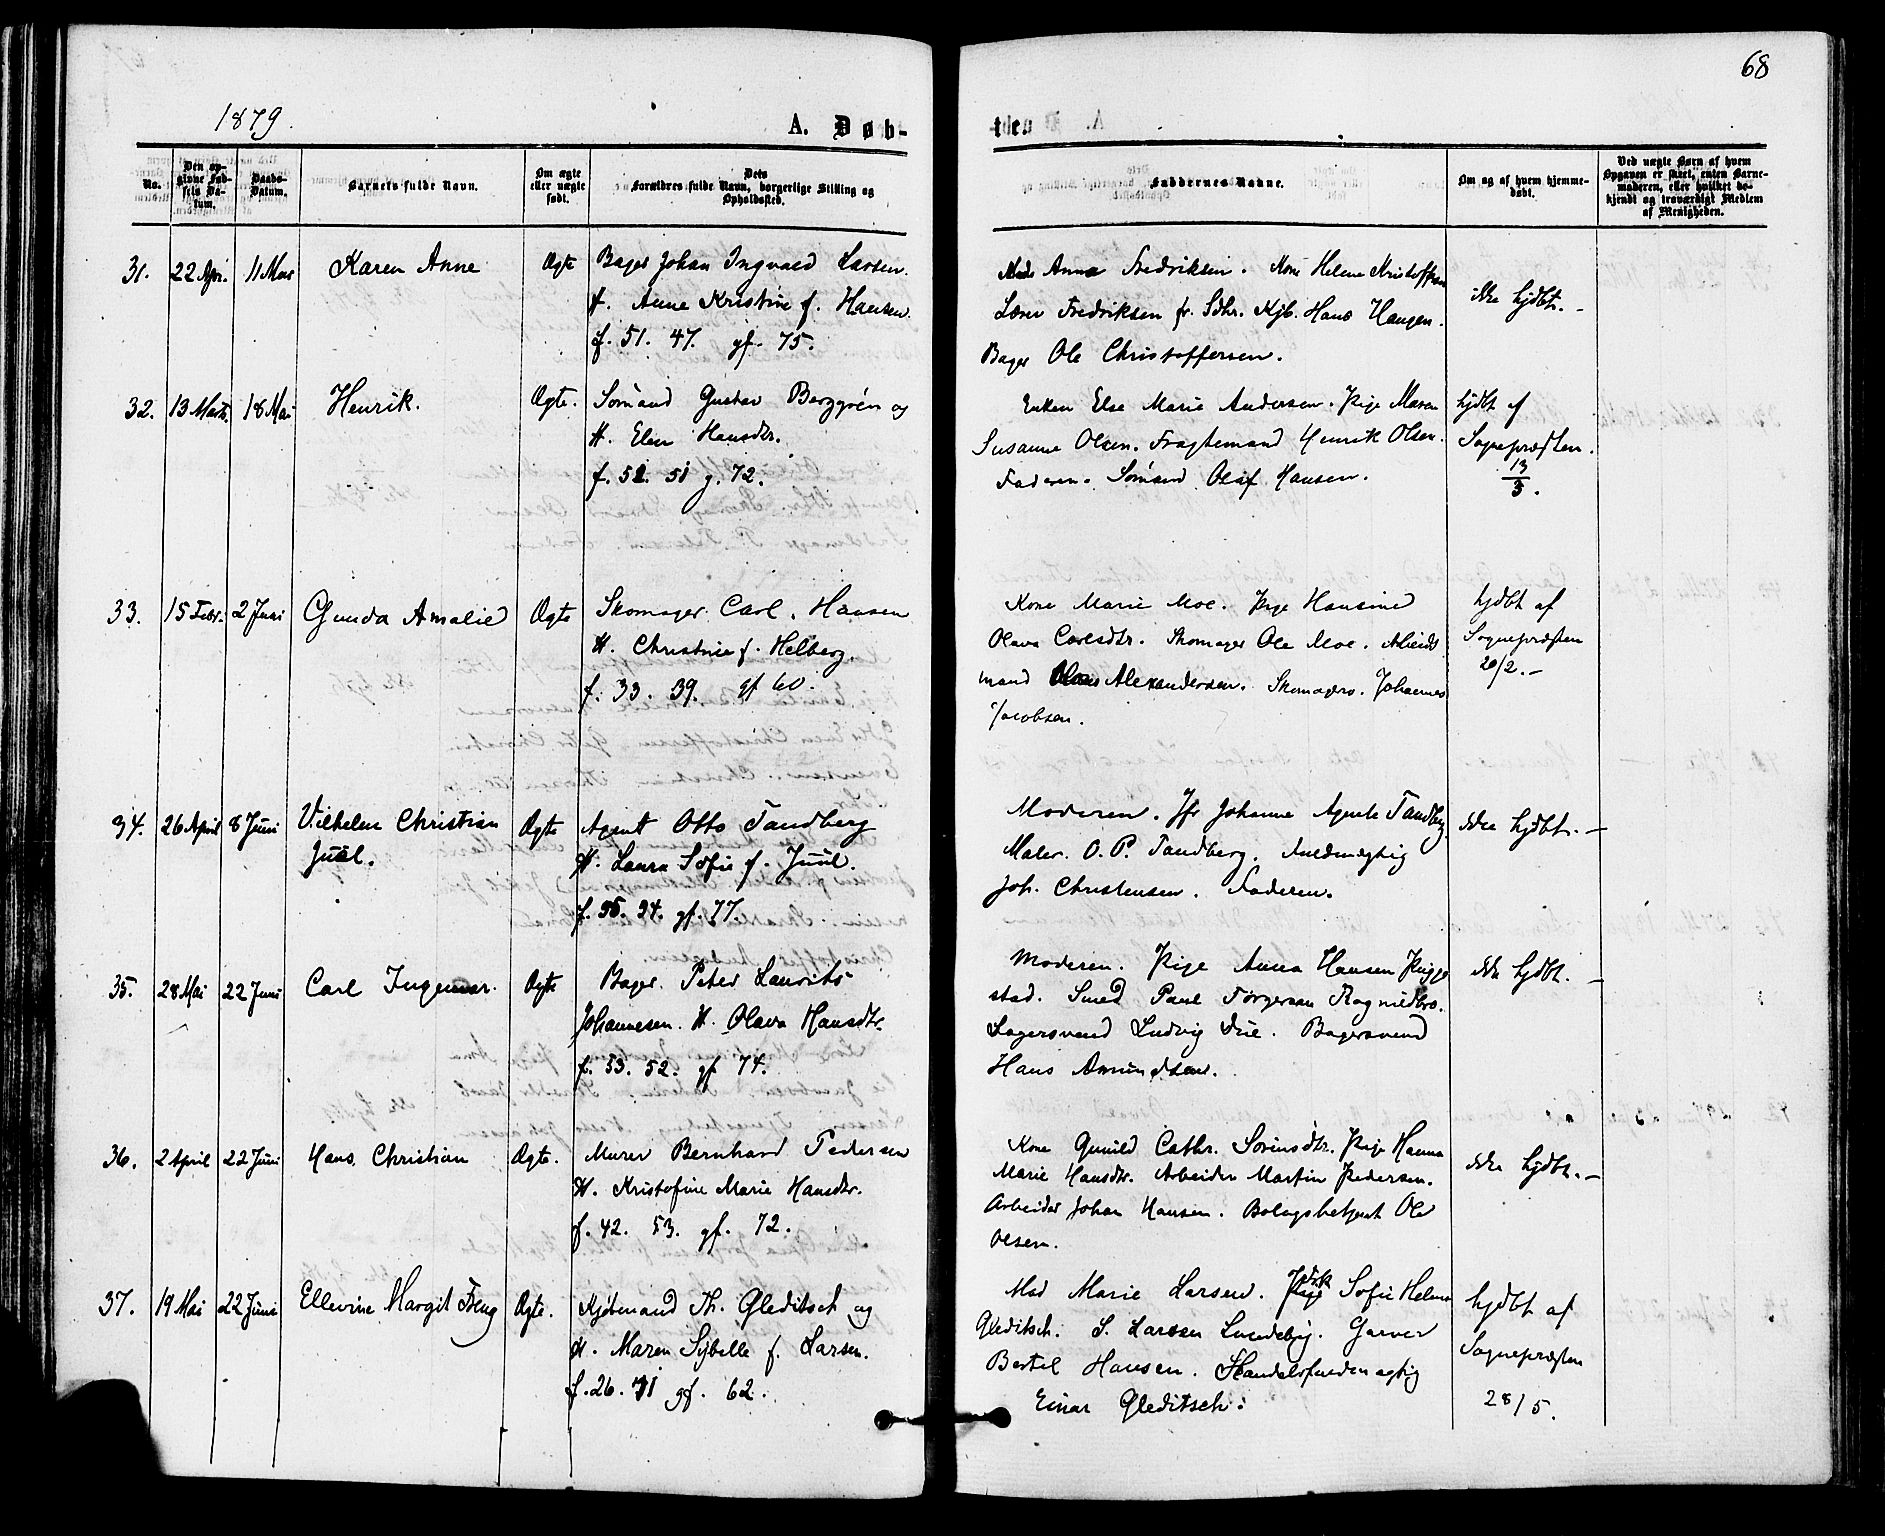 68
1879.
A. Døb-
te.
No.
Den op-
givne Fød-
sels Da-
tum.
Daabs-
Datum.
Barnets fulde Navn.
Om ægte
eller uægte
født.
Dets
Forældres fulde Navn, borgerlige Stilling og
Opholdssted.
Faddernes Navne.
Om og af hvem hjemme-
døbt.
Ved uægte Børn af hvem
Opgaven er skeet, enten Barne-
moderen, eller hvilket be-
kjendt og troværdigt Medlem
af Menigheden.
31. 22 Apr. 11 Mai Karen Anne Ægte
Bager Johan Ingvald Larsen.
H. Anne Kristine f. Hansen.
f. 51. 47. gf. 75.
Anna Fredriksen. Kone Helene Kristoffersen
Lærer Fredriksen fr. Sdhr. Kjb. Hans Haugen.
Bager Ole Christoffersen.
ikke hjdbt. -
32. 13 Marts. 18 Mai Henrik. Ægte.
Sømand Gustav Berggrén og
H. Elen Hansdtr.
f. 52. 51 g. 72.
Enken Else Marie Andersen. Pige Maren
Susanne Olsen. Fragtemand Henrik Olsen.
Faderen. Sømand Olaf Hansen.
hjdbt af
Sognepræsten.
13/3.
33. 15 Febr. 2 Juni Gunda Amalie Ægte
Skomager Carl. Hansen
H. Christine f. Helberg.
f. 33. 39. gf 60.
Kone Marie Moe. Pige Hansine
Olava Carlsdtr. Skomager Ole Moe. Arbeids
mand Alexandersen. Skomagers. Johannes
Jacobsen.
hjdbt af
Sognepræsten
20/2. -
34. 26 April 8 Juni Vilhelm Christian Ægte
Juul.
Agent Otto Tandberg
H. Laura Sofie f. Juul.
f. 55. 54. gf. 77.
Moderen. Jfr Johanne Agnete Tandberg
Maler. O. P. Tandberg. Fuldmægtig
Joh. Christensen. Faderen.
ikke hjdbt. -
35. 28 Mai 22 Juni Carl Ingemar. Ægte
Bager. Peter Laurits
Johannesen. H. Olava Hansdtr.
f. 53. 52. gf 74.
Moderen. Pige Anna Hansen Pugge
stad. Smed Paul Jørgensen Ragnildbro.
Bagersvend Ludvig Lie. Bagersvend
Hans Amundsen.
ikke hjdbt. -
36. 2 April 22 Juni Hans Christian Ægte.
Murer Bernhard Pedersen
H. Kristofine Marie Hansdtr.
f. 42. 53. gf. 72.
Kone Gunild Cathr. Sørensdtr. Pige Hanna
Marie Hansdtr. Arbeider Martin Pedersen.
Arbeider Johan Hansen. Bologsbetjent Ole
Olsen.
ikke hjdbt. -
37. 19 Mai 22 Juni Ellevine Margit Ægte.
Kjøbmand Th. Gleditsch og
H. Maren Sybille f. Larsen.
f. 26. 41 gf. 62.
Mad Marie Larsen. Frk Sofie Helene
Gleditsch. S. Larsen Lundeby. Garver
Bertel Hansen. Handelsfuldmægtig
Einar Gleditsch.
hjdbt af
Sognepræsten
28/5.